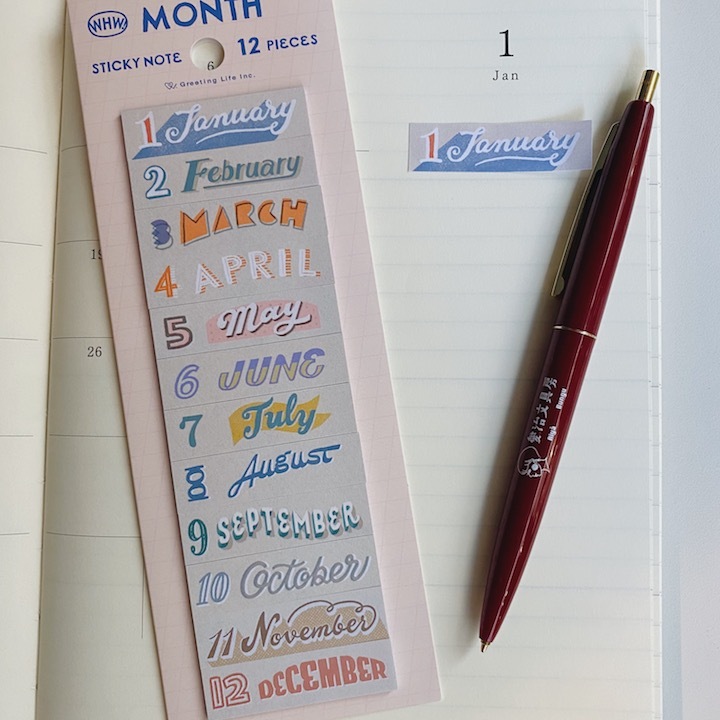 WHW!
MONTH
STICKY NOTE 12 PIECES
6
Greeting Life Inc.
1 January
2 February
3 MARCH
4 APRIL
5 May
6 JUNE
7 July
8 AUGUST
9 SEPTEMBER
10 October
11 November
12 DECEMBER
19
26
1
Jan
1 January
文具房
High Bungu